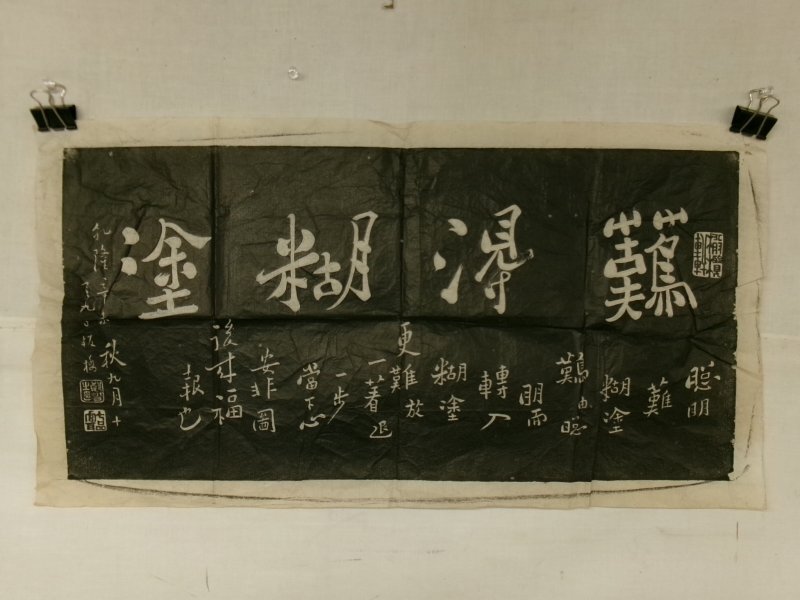 難得糊塗
聰明
難
糊塗
難由聰
明而
轉入
糊塗
更難放
一著退
一步
當下心
安非圖
後來福
報也
乾隆辛未
秋九月十
九日板橋